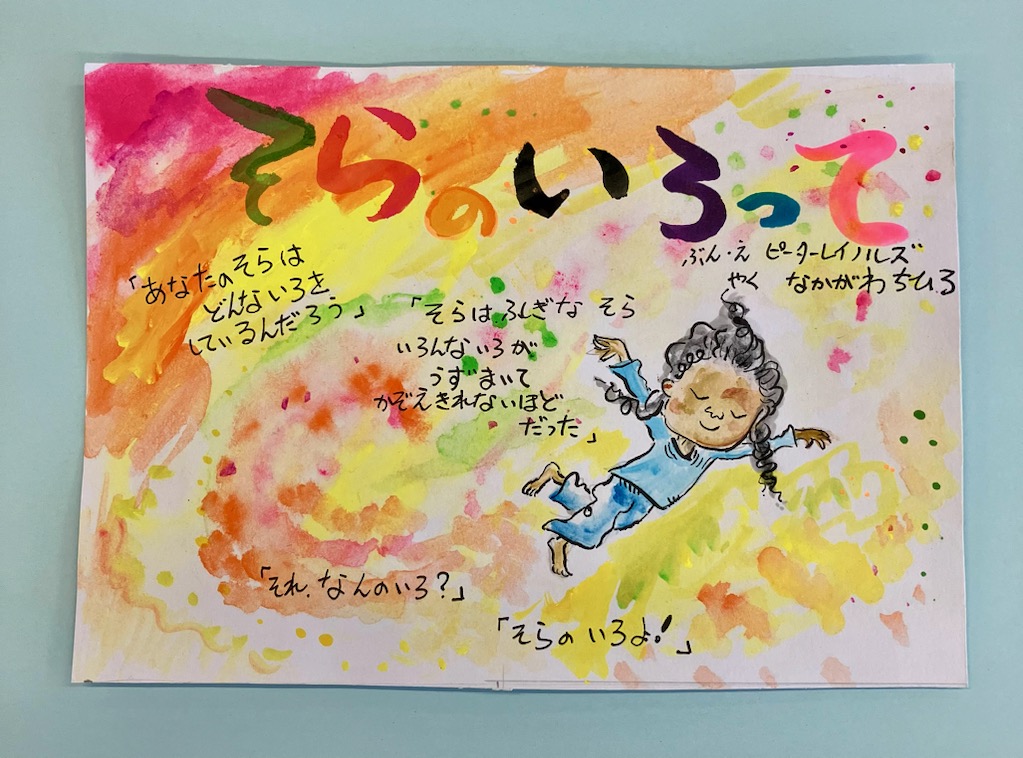 そらのいろって
ぶん・え ピーターレイノルズ
やく なかがわちひろ
「あなたのそらは
どんないろを
しているんだろう」
「そらは ふしぎな そら
いろんないろが
うずまいて
かぞえきれないほど
だった」
「それ、なんのいろ?」
「そらの いろよ!」